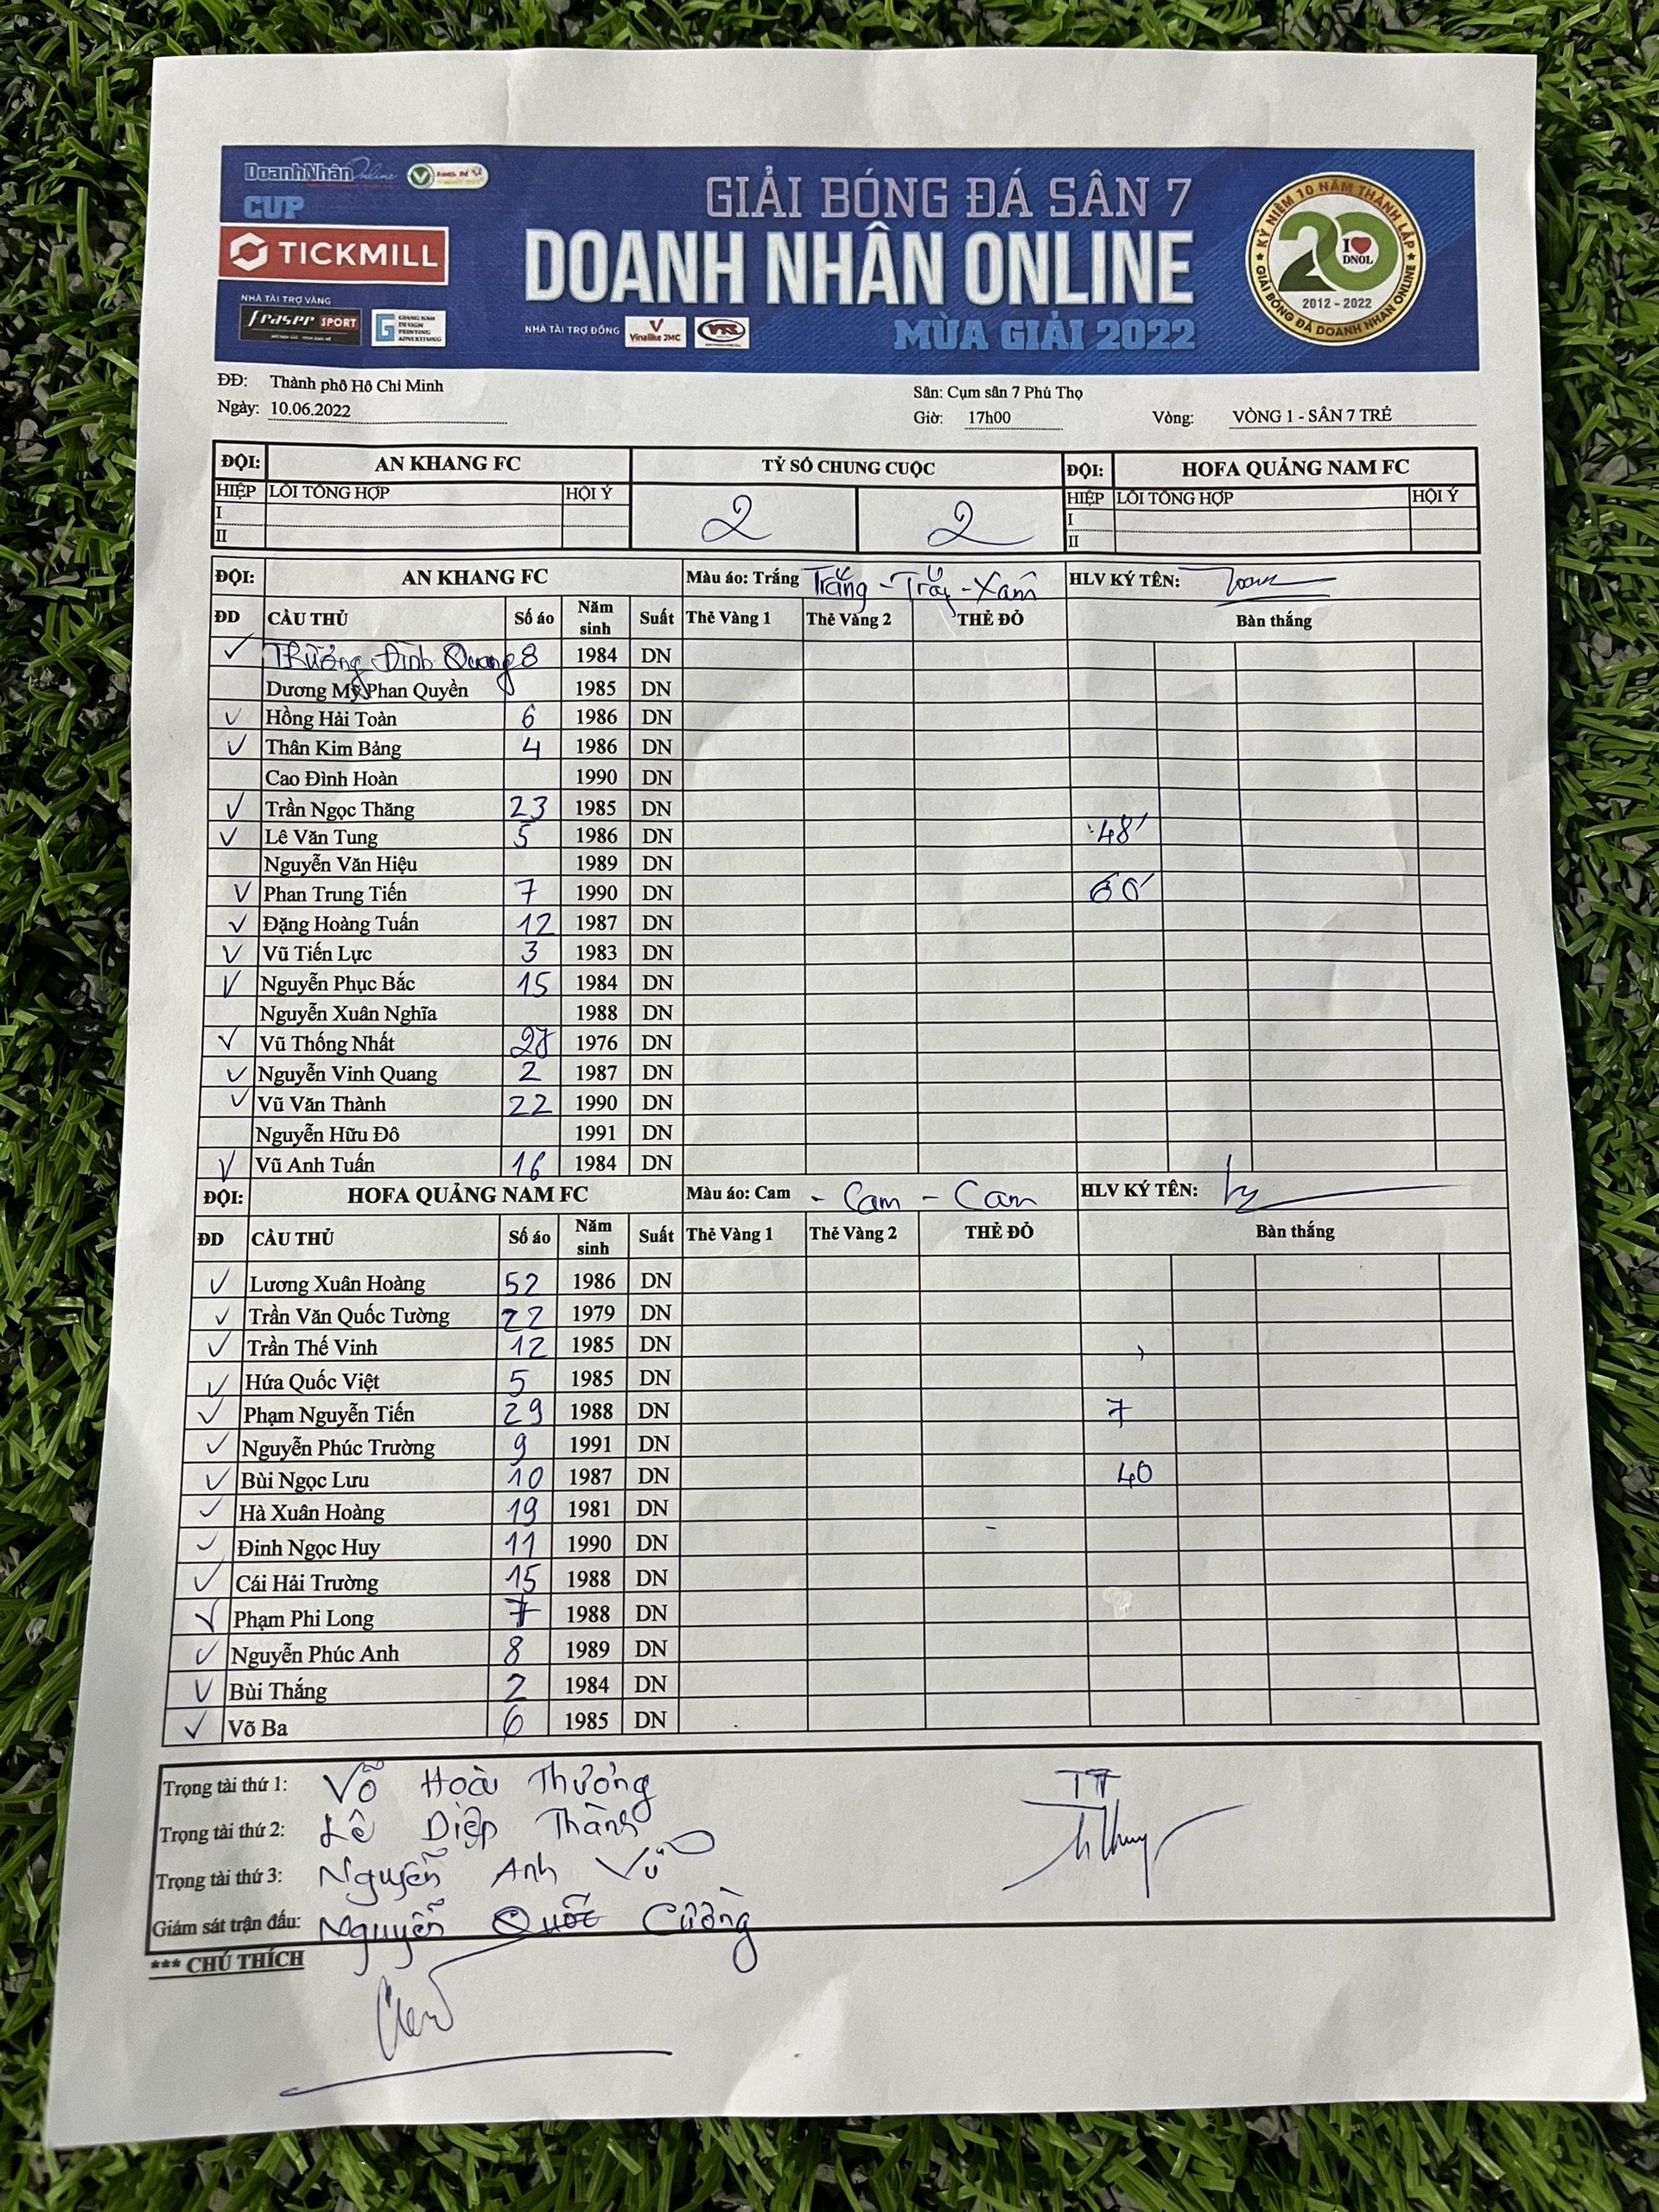 DoanhNhân Online
CUP
GIẢI BÓNG ĐÁ SÂN 7
DOANH NHÂN ONLINE
MÙA GIẢI 2022
TICKMILL
NHÀ TÀI TRỢ VÀNG
fraser SPORT
GIANG NAM DESIGN PRINTING ADVERTISING
NHÀ TÀI TRỢ ĐỒNG
Vinalike JMC
KỶ NIỆM 10 NĂM THÀNH LẬP
20 I ❤ DNOL
2012 - 2022
GIẢI BÓNG ĐÁ DOANH NHÂN ONLINE
ĐĐ: Thành phố Hồ Chí Minh Sân: Cụm sân 7 Phú Thọ
Ngày: 10.06.2022 Giờ: 17h00 Vòng: VÒNG 1 - SÂN 7 TRẺ
ĐỘI: AN KHANG FC TỶ SỐ CHUNG CUỘC ĐỘI: HOFA QUẢNG NAM FC
HIỆP LỖI TỔNG HỢP HỘI Ý 2 2 HIỆP LỖI TỔNG HỢP HỘI Ý
I I
II II
ĐỘI: AN KHANG FC Màu áo: Trắng Trắng - Trắng - Xám HLV KÝ TÊN:
ĐD CẦU THỦ Số áo Năm sinh Suất Thẻ Vàng 1 Thẻ Vàng 2 THẺ ĐỎ Bàn thắng
✓ Trương Đình Quang 8 1984 DN
Dương Mỹ Phan Quyền 1985 DN
✓ Hồng Hải Toàn 6 1986 DN
✓ Thân Kim Bảng 4 1986 DN
Cao Đình Hoàn 1990 DN
✓ Trần Ngọc Thăng 23 1985 DN
✓ Lê Văn Tung 5 1986 DN 48'
Nguyễn Văn Hiệu 1989 DN
✓ Phan Trung Tiến 7 1990 DN 60'
✓ Đặng Hoàng Tuấn 12 1987 DN
✓ Vũ Tiến Lực 3 1983 DN
✓ Nguyễn Phục Bắc 15 1984 DN
Nguyễn Xuân Nghĩa 1988 DN
✓ Vũ Thống Nhất 1976 DN
✓ Nguyễn Vinh Quang 2 1987 DN
✓ Vũ Văn Thành 22 1990 DN
Nguyễn Hữu Đô 1991 DN
✓ Vũ Anh Tuấn 16 1984 DN
ĐỘI: HOFA QUẢNG NAM FC Màu áo: Cam - Cam - Cam HLV KÝ TÊN:
ĐD CẦU THỦ Số áo Năm sinh Suất Thẻ Vàng 1 Thẻ Vàng 2 THẺ ĐỎ Bàn thắng
✓ Lương Xuân Hoàng 52 1986 DN
✓ Trần Văn Quốc Tường 22 1979 DN
✓ Trần Thế Vinh 12 1985 DN
✓ Hứa Quốc Việt 5 1985 DN
✓ Phạm Nguyễn Tiến 29 1988 DN 7
✓ Nguyễn Phúc Trường 9 1991 DN
✓ Bùi Ngọc Lưu 10 1987 DN 40
✓ Hà Xuân Hoàng 19 1981 DN
✓ Đinh Ngọc Huy 11 1990 DN
✓ Cái Hải Trường 15 1988 DN
✓ Phạm Phi Long 7 1988 DN
✓ Nguyễn Phúc Anh 8 1989 DN
✓ Bùi Thắng 2 1984 DN
✓ Võ Ba 6 1985 DN
Trọng tài thứ 1: Võ Hoài Thương TT
Trọng tài thứ 2: Lê Diệp Thành
Trọng tài thứ 3: Nguyễn Anh Vũ
Giám sát trận đấu: Nguyễn Quốc Cường
*** CHÚ THÍCH